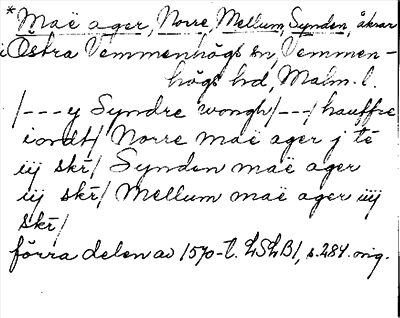 *Maë ager, Norre, Mellum, Synden, åkrar
i Östra Vemmenhögs sn, Vemmen-
högs hd, Malm. l.
/---y Syndre wongh/---/ hauffre
iordt/ Norre maë ager j tē
iij skr̄/ Synden maë ager
iij skr̄/ Mellum maë ager iiij
skr̄/
förra delen av 1570-t. LSLB1, s. 284. orig.